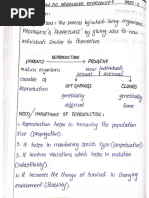 REPRODUCTION : The process by which living organisms
individuals similar to themselves.
REPRODUCTION
PARENTS PROGENY
Mature organisms New individuals
capable of sexual asexual
Reproduction OFFSPRINGS CLONES
genetically genetically
different same
NEED/IMPORTANCE OF REPRODUCTION :
1. Reproduction helps in increasing the population
size (propagation).
2. It helps in maintaining species type (perpetuation).
3. It involves variations which helps in
(adaptability).
4. It increases the chance of survival in changing
environment